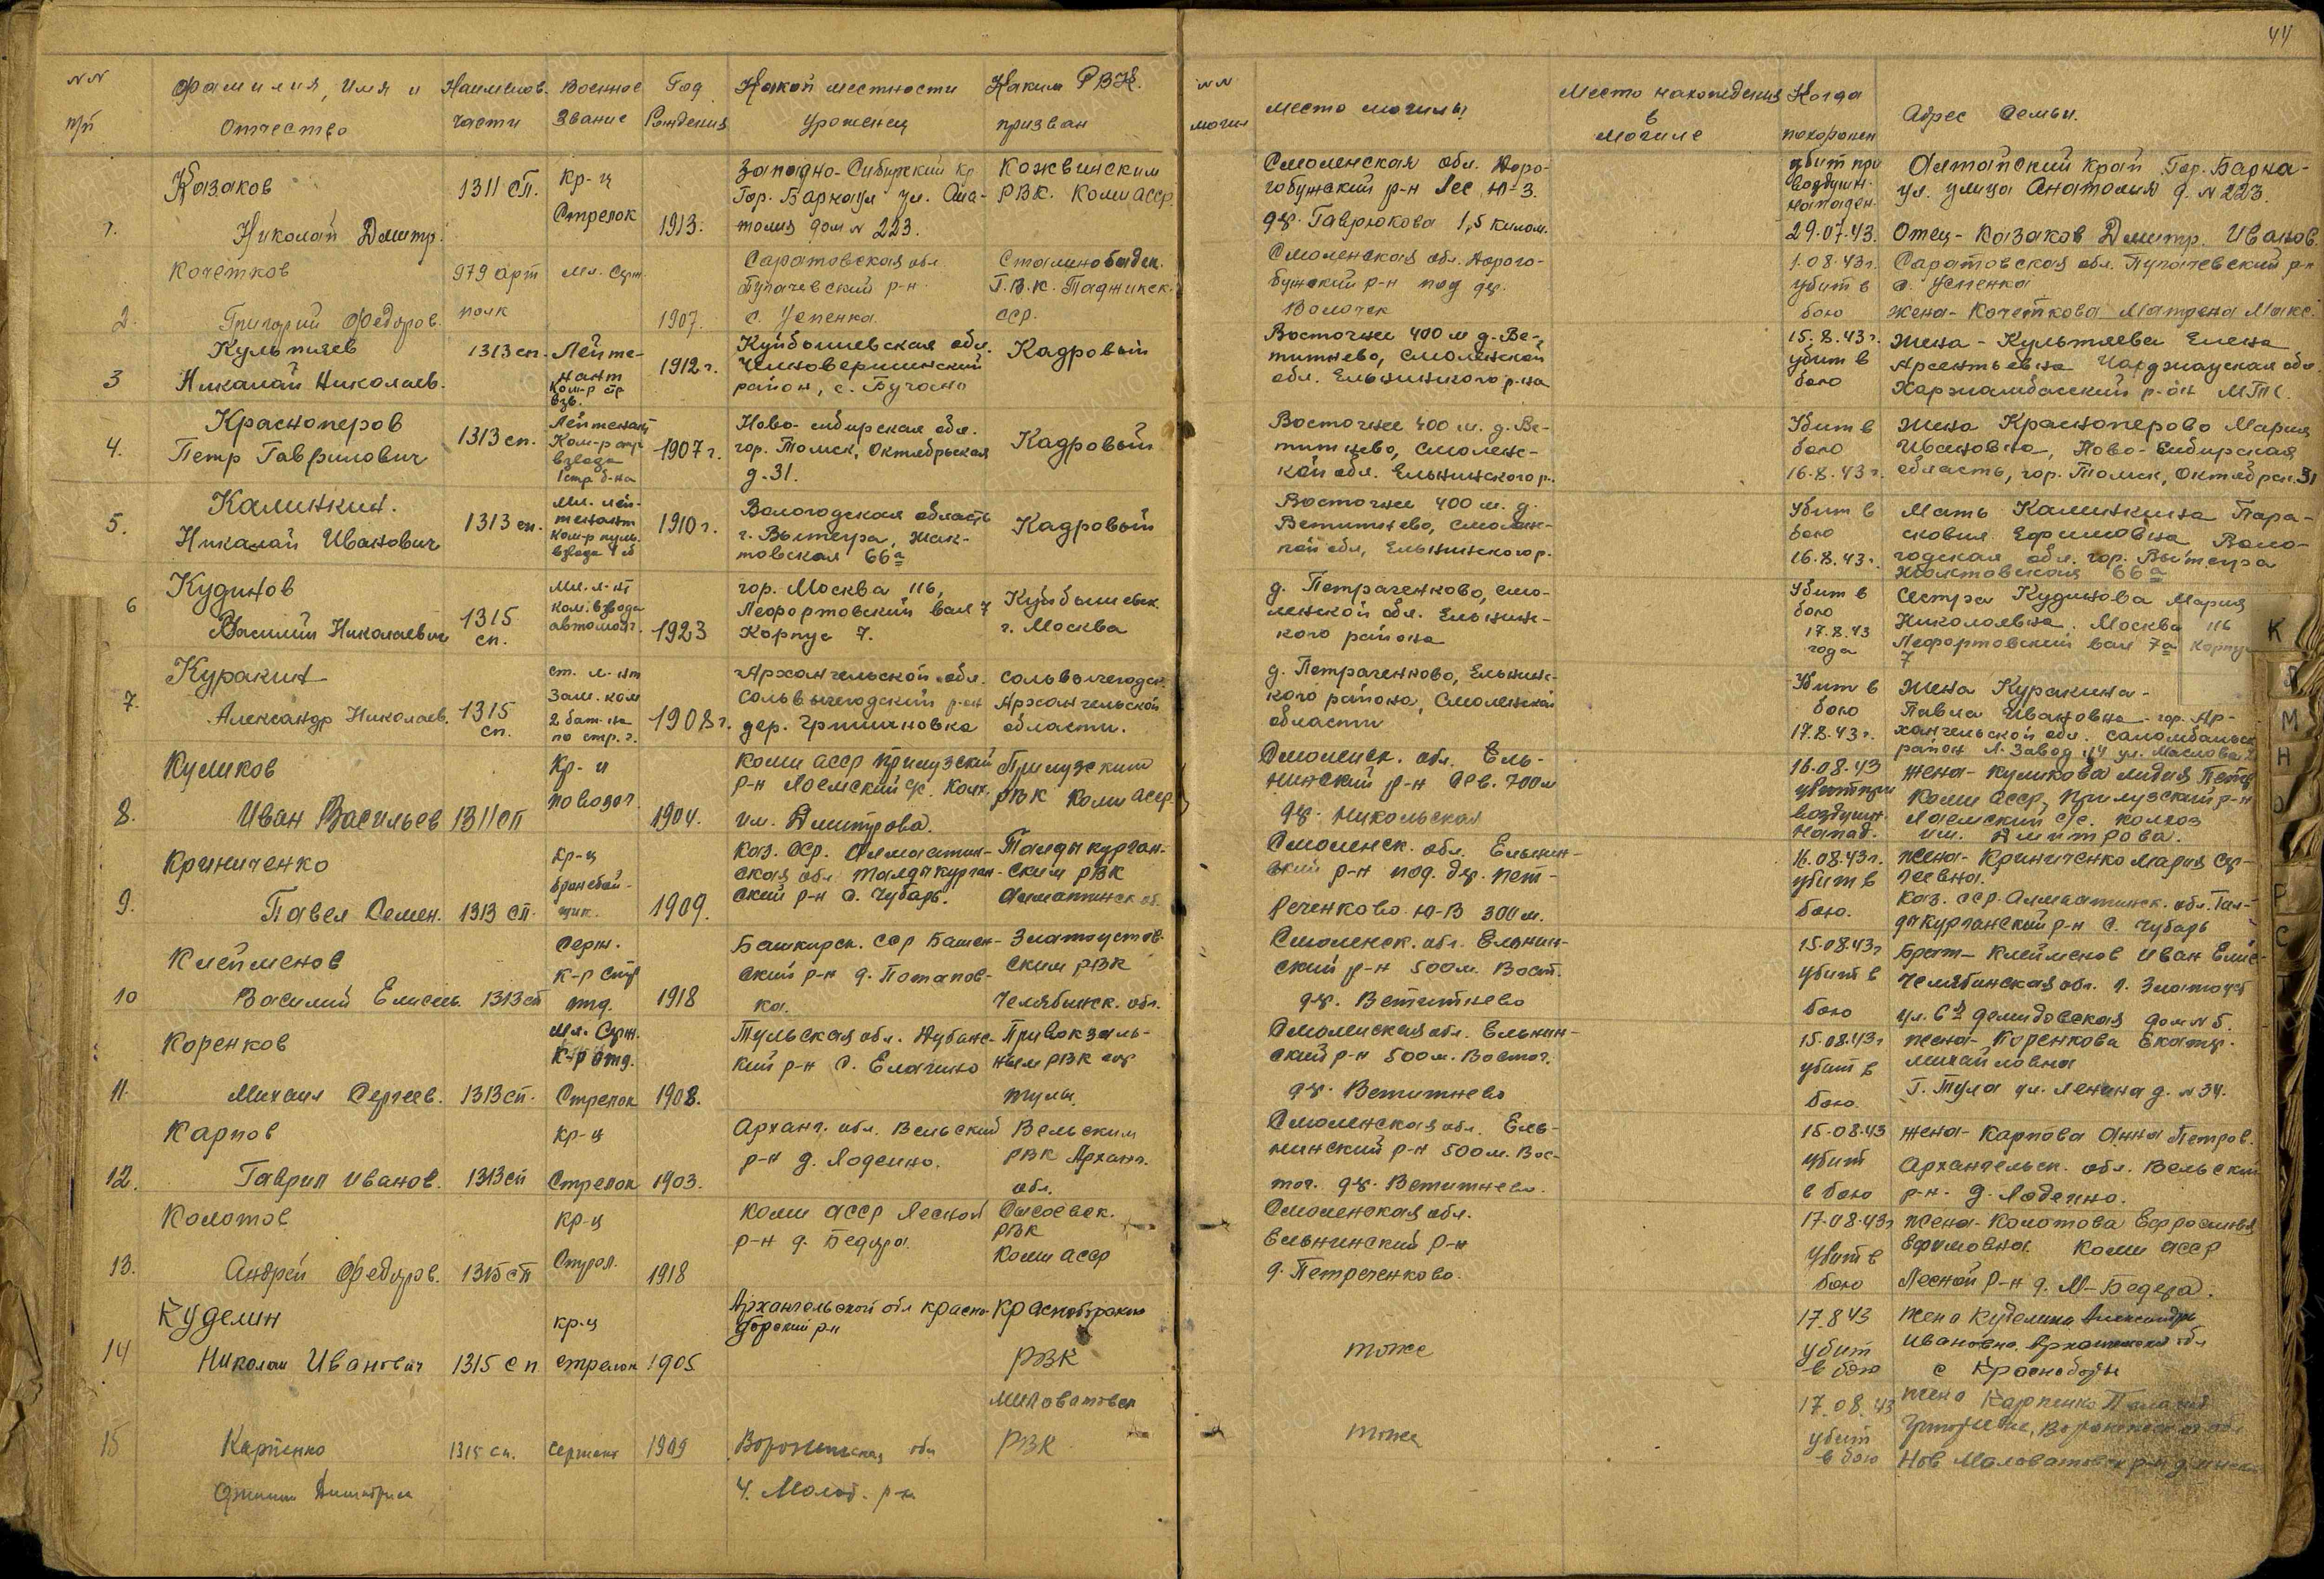 44
NN п/п
Фамилия, Имя и Отчество
Наименов. части
Военное Звание
Год Рождения
Какой местности уроженец
Каким РВК. призван
NN могил
Место могилы
Место нахождения в могиле
Когда похоронен
Адрес семьи.
1.
Казаков
Николай Дмитр.
1311 СП.
Кр-ц
Стрелок
1913.
Западно-Сибирский Кр
Гор. Барнаул ул. Ана-
толия дом N 223.
Кожвинским
РВК. Коми АССР.
Смоленская обл. Доро-
гобужский р-н Лес Ю-З.
дер. Гаврюкова 1,5 килом.
убит при
воздушн.
нападен.
29.07.43.
Алтайский край Гор. Барна-
ул. улица Анатолия д. N 223.
Отец - Казаков Дмитр. Иванов.
2.
Кочетков
Григорий Федоров.
979 арт
полк
Мл. Серж.
1907.
Саратовская обл
Пугачевский р-н.
с. Успенка.
Сталинободск.
Г.В.К. Таджикск.
ССР.
Смоленская обл. Дорого-
бужский р-н под дер.
Волочек
1.08.43г.
убит в
бою
Саратовская обл. Пугачевский р-н
с. Успенка
жена - Кочеткова Матрена Макс.
3
Культяев
Николай Николаев.
1313 сп.
Лейте-
нант
Ком-р стр
взв.
1912 г.
Куйбышевская обл.
Челновершинский
район, с.
Кадровый
Восточнее 400 м д. Ве-
титнево, Смоленской
обл. Ельнинского р-на
15.8.43г.
убит в
бою
Жена - Культяева Елена
Арсентьевна Чарджауская обл.
р-он МТС.
4.
Красноперов
Петр Гаврилович
1313 сп.
Лейтенант
Ком-р стр
взвода
1 стр б-на
1907 г.
Ново-сибирская обл.
гор. Томск, Октябрьская
д. 31.
Кадровый
Восточнее 400 м. д. Ве-
титнево, Смоленс-
кой обл. Ельнинского р.
Убит в
бою
16.8.43г.
Жена Красноперова Мария
Ивановна, Ново-Сибирская
область, гор. Томск, Октябрск. 31
5.
Калинкин.
Николай Иванович
1313 сп.
Мл. лей-
тенант
ком-р пуль.
взвода 1 б
1910 г.
Вологодская область
г. Вытегра,
66а
Кадровый
Восточнее 400 м. д.
Ветитнево, Смоленс-
кой обл, Ельнинского р.
Убит в
бою
16.8.43г.
Мать Калинкина Пара-
сковия Ефимовна Воло-
годская обл. гор. Вытегра
66а
6
Кудинов
Василий Николаевич
1315
сп.
Мл. л-нт
ком. взвода
автомат.
1923
гор. Москва 116,
Лефортовский вал 7
Корпус 7.
Куйбышевск.
г. Москва
д. Петраченково, Смо-
ленской обл. Ельнинс-
кого района
Убит в
бою
17.8.43
года
Сестра Кудинова Мария
Николаевна. Москва 116
Лефортовский вал 7а корпус
7
7.
Куракин
Александр Николаев.
1315
сп.
ст. л-нт
Зам. ком
2 бат-на
по стр. ч.
1908г.
Архангельской обл.
Сольвычегодский р-он
дер. Гришановка
Сольвычегодск.
Архангельской
области.
д. Петраченково, Ельнинс-
кого района, Смоленской
области
Убит в
бою
17.8.43г.
Жена Куракина -
Павла Ивановна. гор. Ар-
хангельской обл. Соломбальск
район Л. Завод 14 ул. Маслова
8.
Куликов
Иван Васильев
1311 СП
Кр-ц
повозоч.
1904.
Коми АССР Прилузский
р-н Лоемский с/с. Колх.
им. Димитрова.
Прилузским
РВК Коми АССР
Смоленск. обл. Ель-
нинский р-н Сев. 700м
дер. Никольская
16.08.43
убит при
воздушн.
напад.
Жена - Куликова Лидия Петр
Коми АССР, Прилузский р-н
Лоемский с/с. колхоз
им. Димитрова.
9.
Криниченко
Павел Семен.
1313 СП.
Кр-ц
бронебой-
щик.
1909.
Каз. ССР. Алмаатин-
ская обл Талдыкурган-
ский р-н с. Чубарь.
Талдыкурган-
ским РВК
Алмаатинск об.
Смоленск. обл. Ельнин-
ский р-н под дер. Пет-
реченково Ю-В 300м.
16.08.43г.
убит в
бою.
Жена - Криниченко Мария Сер-
геевна.
Каз. ССР. Алмаатинск. обл. Тал-
дыкурганский р-н с. Чубарь
10
Клейменов
Василий Елисеев.
1313 сп
Серж.
К-р Стр
отд.
1918
Башкирск. ССР Башен-
ский р-н д. Потапов-
ка.
Златоустов-
ским РВК
Челябинск. обл.
Смоленск. обл. Ельнин-
ский р-н 500м. Вост.
дер. Ветитнево
15.08.43г
убит в
бою
Брат - Клейменов Иван Елис-
Челябинская обл. г. Златоуст
ул. 6я демидовская дом N 5.
11.
Коренков
Михаил Сергеев.
1313 сп.
Мл. Серж.
К-р отд.
Стрелок
1908.
Тульская обл. Дубенс-
кий р-н с. Елагино
Привокзаль-
ным РВК гор
Тулы.
Смоленская обл. Ельнин-
ский р-н 500м. Восточ.
дер. Ветитнево
15.08.43г
убит в
бою.
Жена - Коренкова Екатер.
Михайловна
Г. Тула ул. Ленина д. N 34.
12.
Карпов
Гаврил Иванов.
1313 сп
Кр-ц
Стрелок
1903.
Арханг. обл. Вельский
р-н д. Лодейно.
Вельским
РВК Арханг.
обл.
Смоленская обл. Ель-
нинский р-н 500м. Вос-
точ. дер. Ветитнево.
15.08.43
убит
в бою
Жена - Карпова Анна Петров.
Архангельск. обл. Вельский
р-н. д. Лодейно.
13.
Колотов
Андрей Федоров.
1315 сп
Кр-ц
Стрел.
1918
Коми АССР Лесной
р-н д. Бедера.
Сысоевск.
РВК
Коми АССР
Смоленская обл.
Ельнинский р-н
д. Петреченково.
17.08.43г
Убит в
бою
Жена - Колотова Ефросинья
Ефимовна. Коми АССР
Лесной р-н д. М-Бедера.
14
Куделин
Николай Иванович
1315 сп
кр-ц
стрелок
1905
Архангельской обл Красно-
борский р-н
Красноборским
РВК
тоже
17.8.43
убит
в бою
жена Куделина Александра
Ивановна Архангельская обл
с Красноборск
15
Карпенко
1315 сп.
Сержант
1909
Воронежская обл
РВК
тоже
17.08.43
убит
в бою
жена Карпенко